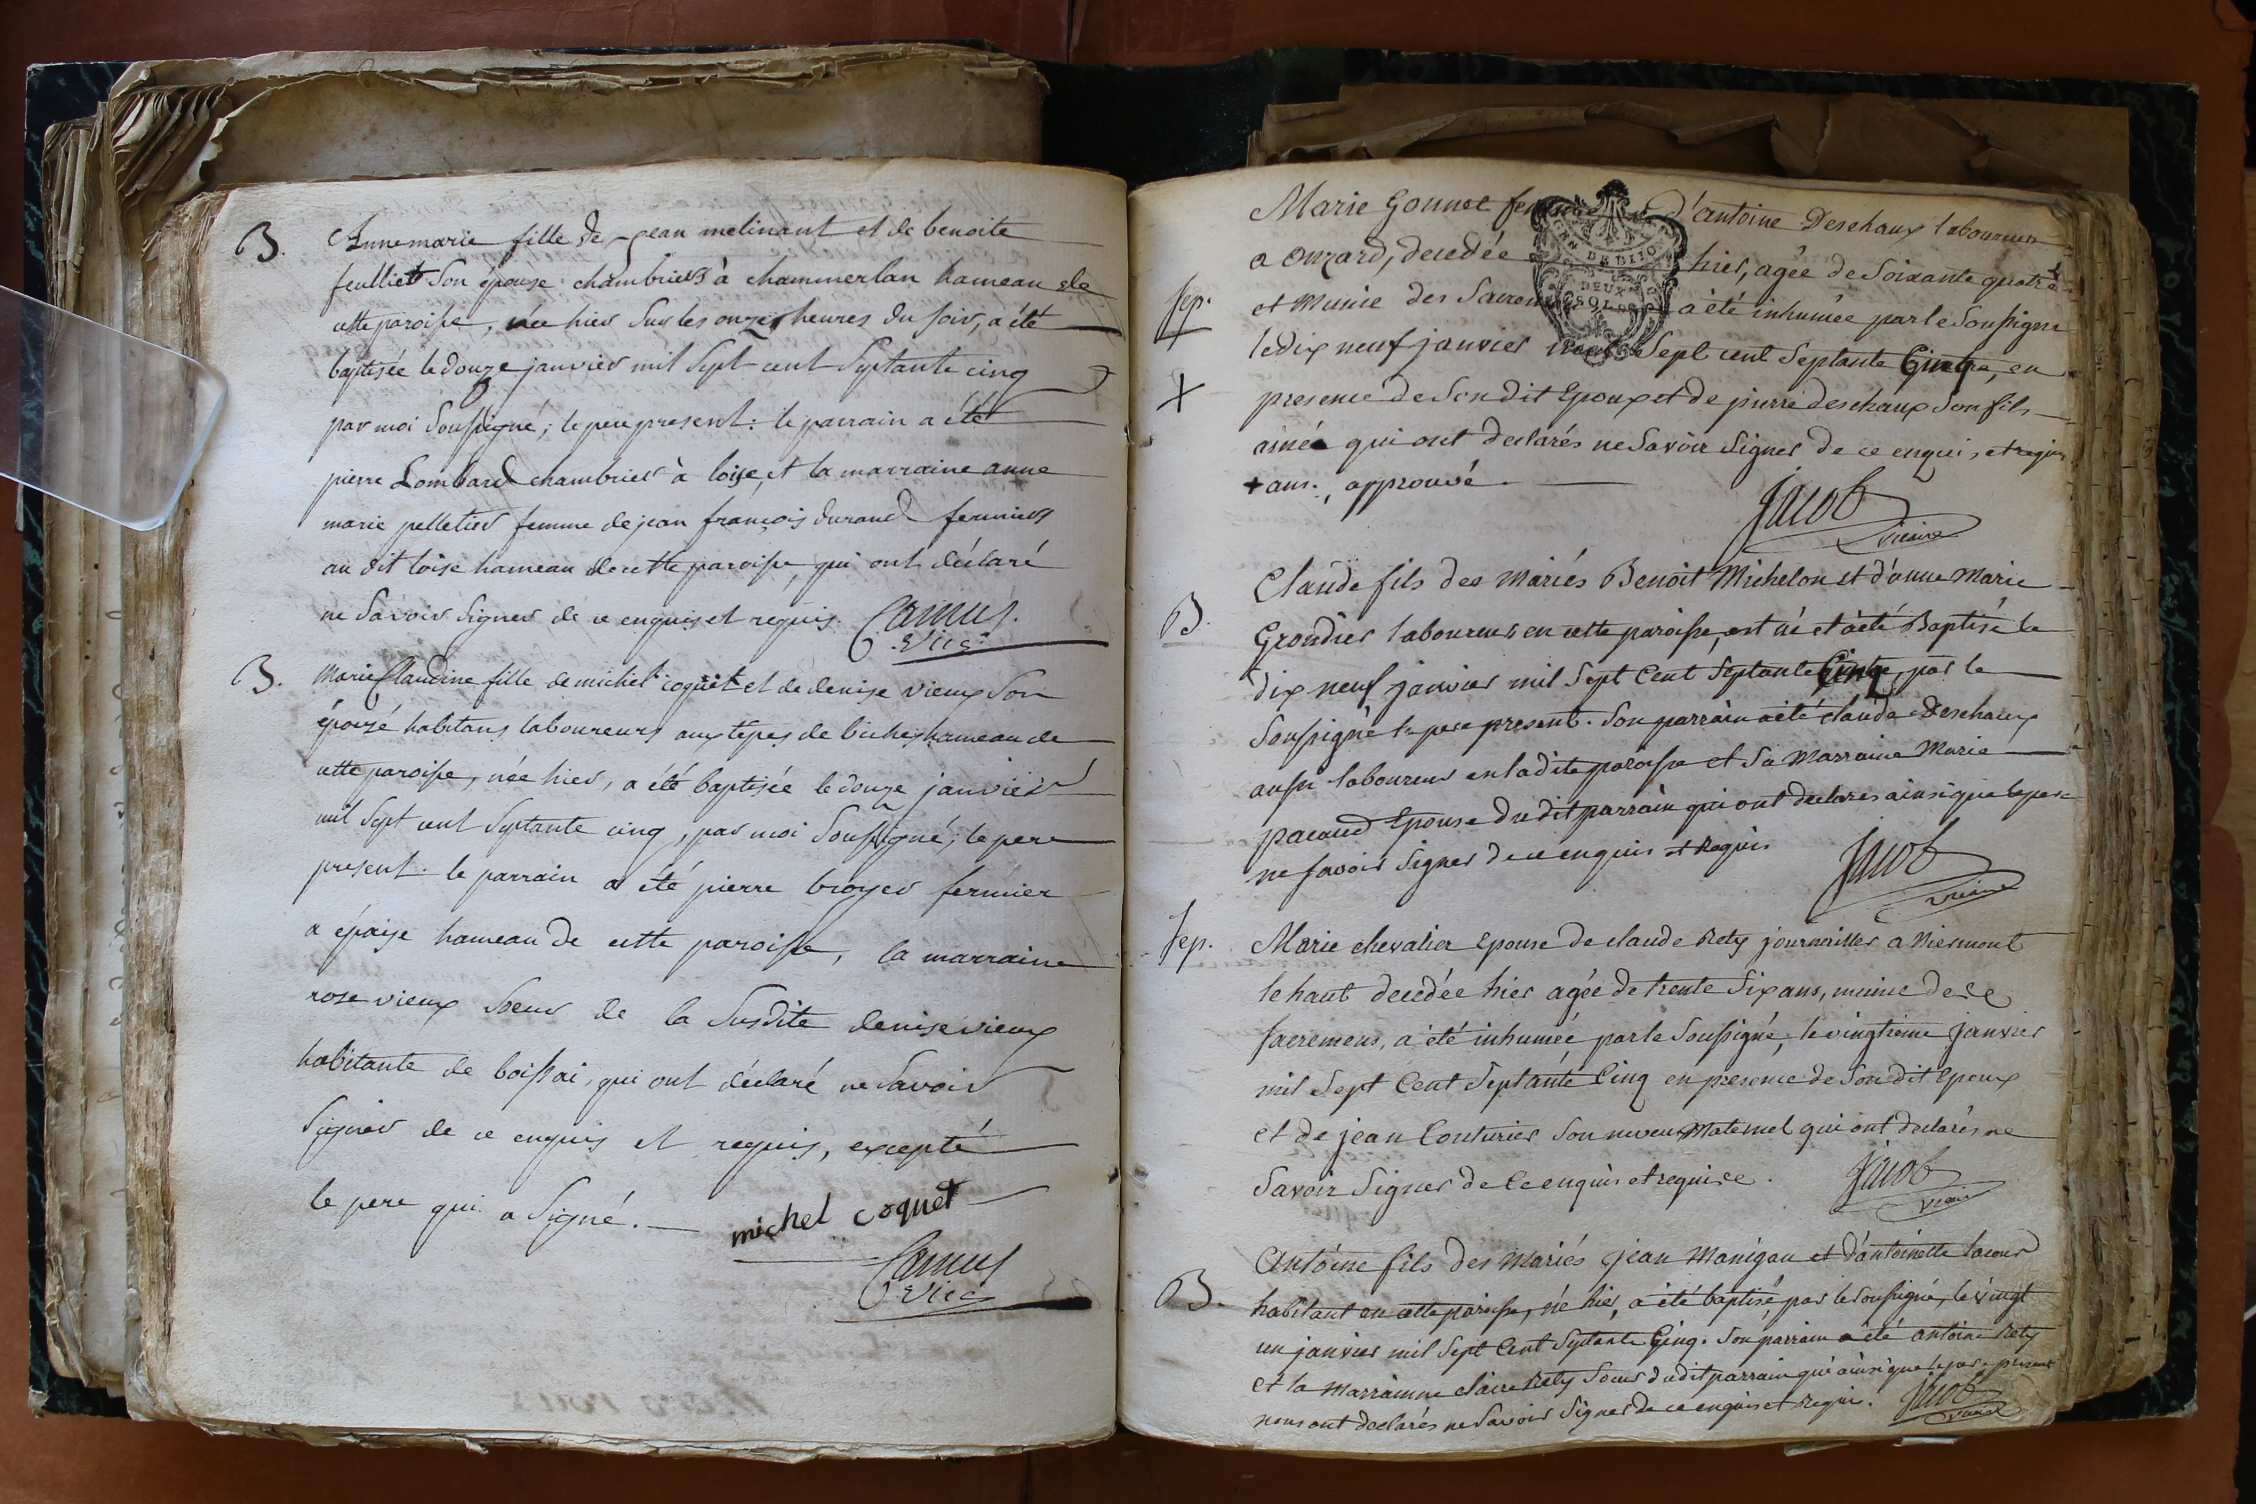 B. Annemarie fille de jean melinant et de benoite
feulliet son épouse chambriers à chammerlan hameau de
cette paroisse, née hier sur les onzes heures du soir, a été
baptisée le douze janvier mil sept cent septante cinq
par moi soussigné; le pere present: le parrain a été
pierre Lombard chambrier à loise, et la marraine anne
marie pelletier femme de jean françois durand fermier
au dit loise hameau de cette paroisse, qui ont déclaré
ne savoir signer de ce enquis et requis. Camus
Vic.
B. Marie Claudine fille de michel coquet et de denise vieux son
épouse habitans laboureurs aux tepes de biches hameau de
cette paroisse, née hier, a été baptisée le douze janvier
mil sept cent septante cinq, par moi soussigné; le pere
present. le parrain a été pierre broyer fermier
a épaise hameau de cette paroisse, la marraine
rose vieux soeur de la susdite denise vieux
habitante de boissai, qui ont déclaré ne savoir
signer de ce enquis et requis, excepté
le pere qui a signé. michel coquet
Camus
Vic.
Marie Gonnot femme d'antoine Deschaux laboureur
a Onzard, decedée hier, agée de soixante quatre +
GEN DE DIJON
DEUX
SOLS
Sep. et munie des sacremens a été inhumée par le soussigné
le dix neuf janvier mil sept cent septante Cinq, en
+ presence de son dit Epoux et de pierre deschaux son fils
ainé qui ont declarés ne savoir signer de ce enquis, et requis
+ ans., approuvé.
Jacob
vicaire
Claude fils des mariés Benoit Michelon et d'anne Marie
B. Grondier laboureur en cette paroisse, est né et a été Baptisé le
dix neuf janvier mil sept Cent septante Cinq, par le
soussigné le pere present. son parrain a été claude Deschaux
aussi laboureur en la dite paroisse et sa Marraine Marie
pacaud Epouse du dit parrain qui ont declarés ainsi que le pere
ne savoir signer de ce enquis et Requis
Jacob
vicaire
Sep. Marie chevalier Epouse de claude Rety journaillier a Niermont
le haut decedée hier agée de trente six ans, munie de
sacremens, a été inhumée par le soussigné, le vingtieme janvier
mil sept Cent septante Cinq en presence de son dit Epoux
et de jean Couturier son neveu Maternel qui ont declarés ne
savoir signer de Ce enquis et requis.
Jacob
vicaire
Antoine fils des Mariés jean Manigau et d'antoinette lacour
B. habitant en cette paroisse, né hier, a été baptisé, par le soussigné, le vingt
un janvier mil sept Cent septante Cinq. son parrain a été antoine Rety
et la Marrainne claire Rety soeur du dit parrain qui ainsi que le pere present
nous ont declarés ne savoir signer de ce enquis et Requis. Jacob
vicaire